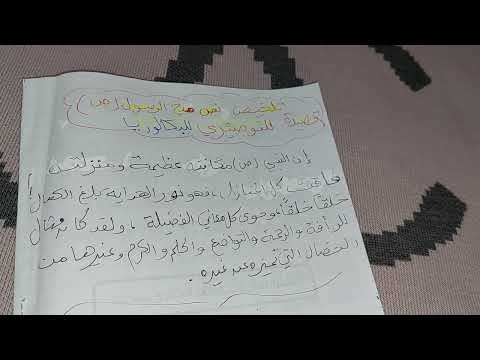 تلخيص نص مدح الرسول (ص)
قصيدة للبوصيري للبكالوريا
إن النبي (ص) مكانته عظيمة ومنزلته
فاقت كل المنازل، فهو نور الهداية بلغ الكمال
خلقا خلقا، وحوى كل معاني الفضيلة، ولقد كان مثال
للرأفة والرحمة والتواضع والحلم والكرم وغيرها من
الخصال التي تميزه عن غيره.